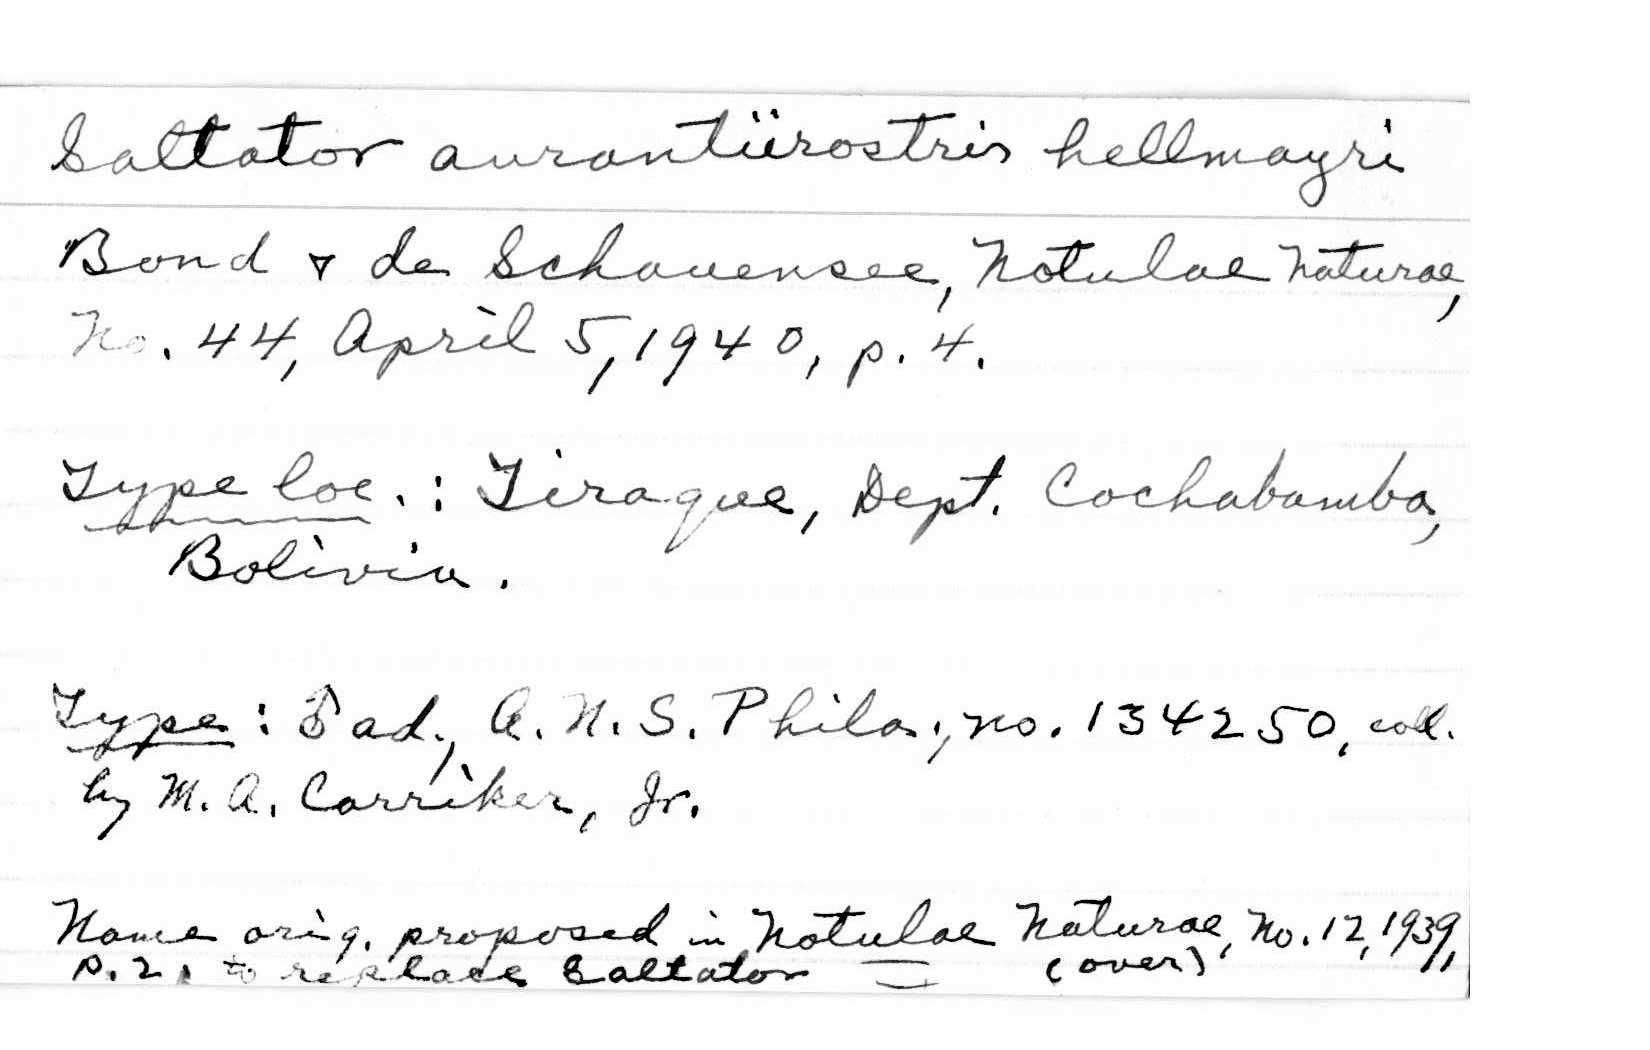 Saltator aurantiirostris hellmayri
Bond & de Schauensee, Notulae Naturae,
No. 44, April 5, 1940, p. 4.
Type loc.: Tiraque, Dept. Cochabamba,
Bolivia.
Type: ad., A.N.S. Phila., no. 134250, coll.
by M. A. Carriker, Jr.
Name orig. proposed in Notulae Naturae, No. 12, 1939,
p. 2, to replace Saltator (over)